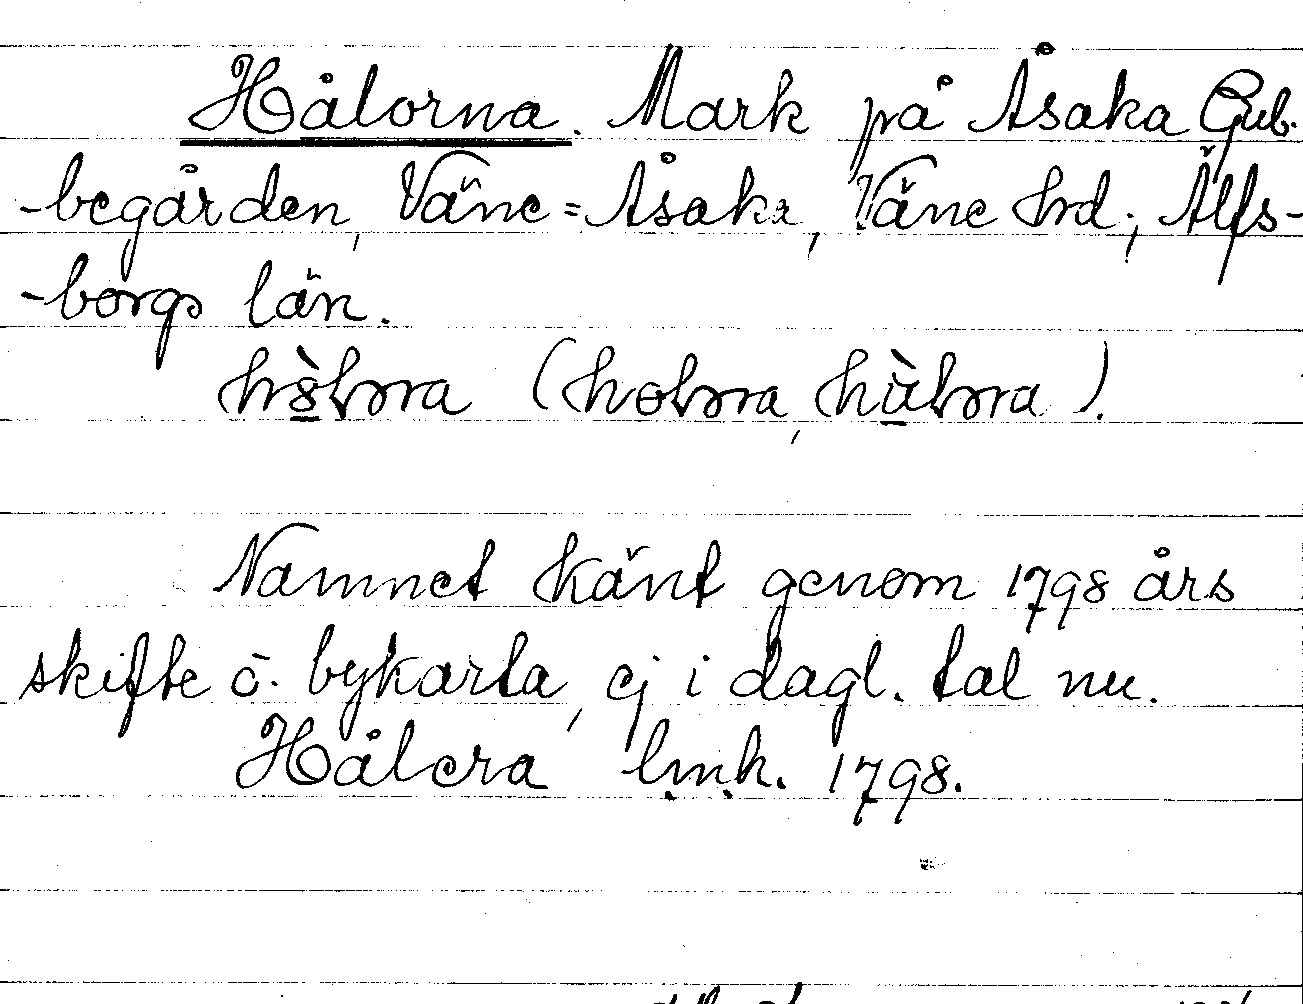 Hålorna. Mark på Åsaka Gub-
-begården, Väne=Åsaka, Väne hrd; Älfs-
-borgs län.
Namnet känt genom 1798 års
skifte o. bykarta, ej i dagl. tal nu.
Hålera lmk. 1798.